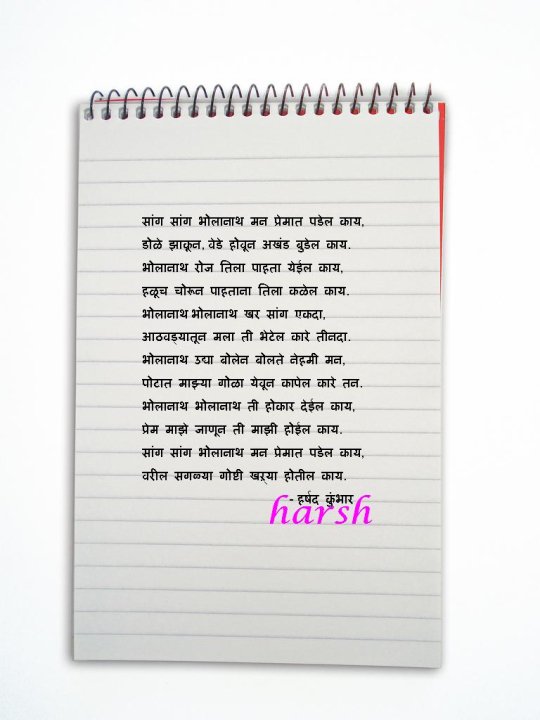 सांग सांग भोलानाथ मन प्रेमात पडेल काय,
डोळे झाकून, वेडे होवून अखंड बुडेल काय.
भोलानाथ रोज तिला पाहता येईल काय,
हळूच चोरून पाहताना तिला कळेल काय.
भोलानाथ भोलानाथ खर सांग एकदा,
आठवड्यातून मला ती भेटेल कारे तीनदा.
भोलानाथ उद्या बोलेन बोलते नेहमी मन,
पोटात माझ्या गोळा येवून कापेल कारे तन.
भोलानाथ भोलानाथ ती होकार देईल काय,
प्रेम माझे जाणून ती माझी होईल काय.
सांग सांग भोलानाथ मन प्रेमात पडेल काय,
वरील सगळ्या गोष्टी खऱ्या होतील काय.
- हर्षद कुंभार
harsh